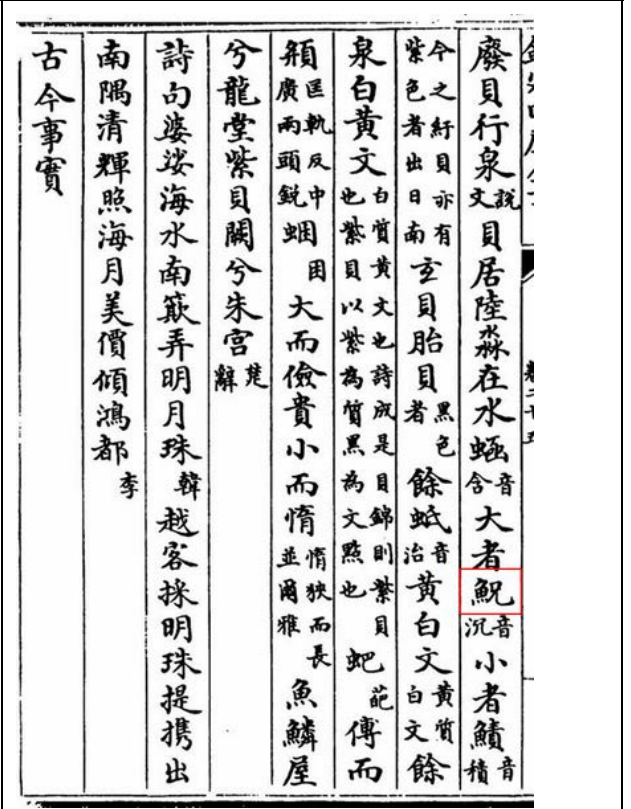 廢貝行泉說文貝居陸淼在水音含大者音沉小者鰿音積
今之紆貝亦有紫色者出日南玄貝胎貝黑色者餘蚳音治黃白文黃質白文餘
泉白黃文白質黃文也詩成是貝錦則紫貝也紫貝以紫為質黑為文點也蚆葩傅而
頯匡軌反中廣兩頭銳蜠囷大而儉貴小而惰惰狹而長並爾雅魚鱗屋
兮龍堂紫貝闕兮朱宫楚辭
詩句婆娑海水南簸弄明月珠韓越客採明珠提携出
南隅清輝照海月美價傾鴻都李
古今事實